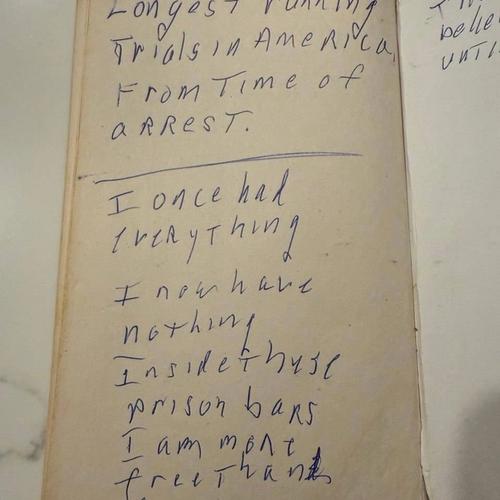 Longest running
Trials in America,
From Time of
aRREST.
I once had
everything
I now have
nothing
Inside these
prison bars
I am more
free Than
belie
unti